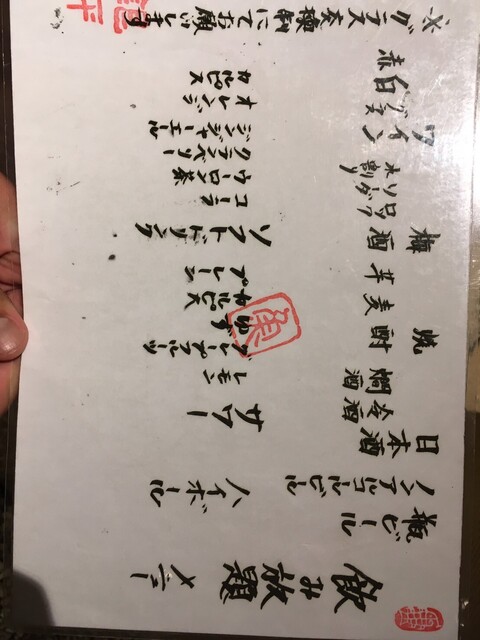 飲み放題
メニュー
瓶ビール
ノンアルコールビール
ハイボール
日本酒
冷酒
燗酒
焼酎
麦
芋
梅酒
ロック
ソーダ
水割り
ワイン
グラス
白
赤
サワー
レモン
グレープフルーツ
ゆず
カルピス
プレーン
ソフトドリンク
コーラ
ウーロン茶
クランベリー
ジンジャーエール
オレンジ
カルピス
※グラス交換制にてお願いします